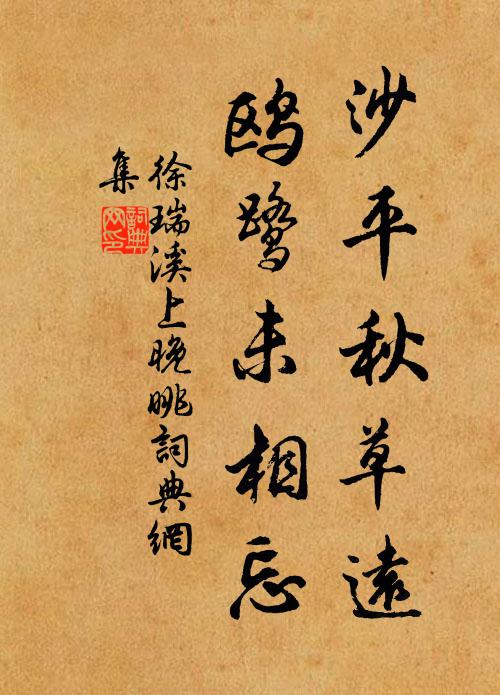 沙平秋草遠
鸥鹭未相忘
徐瑞溪上晚眺詞典網
集
詞典
网印